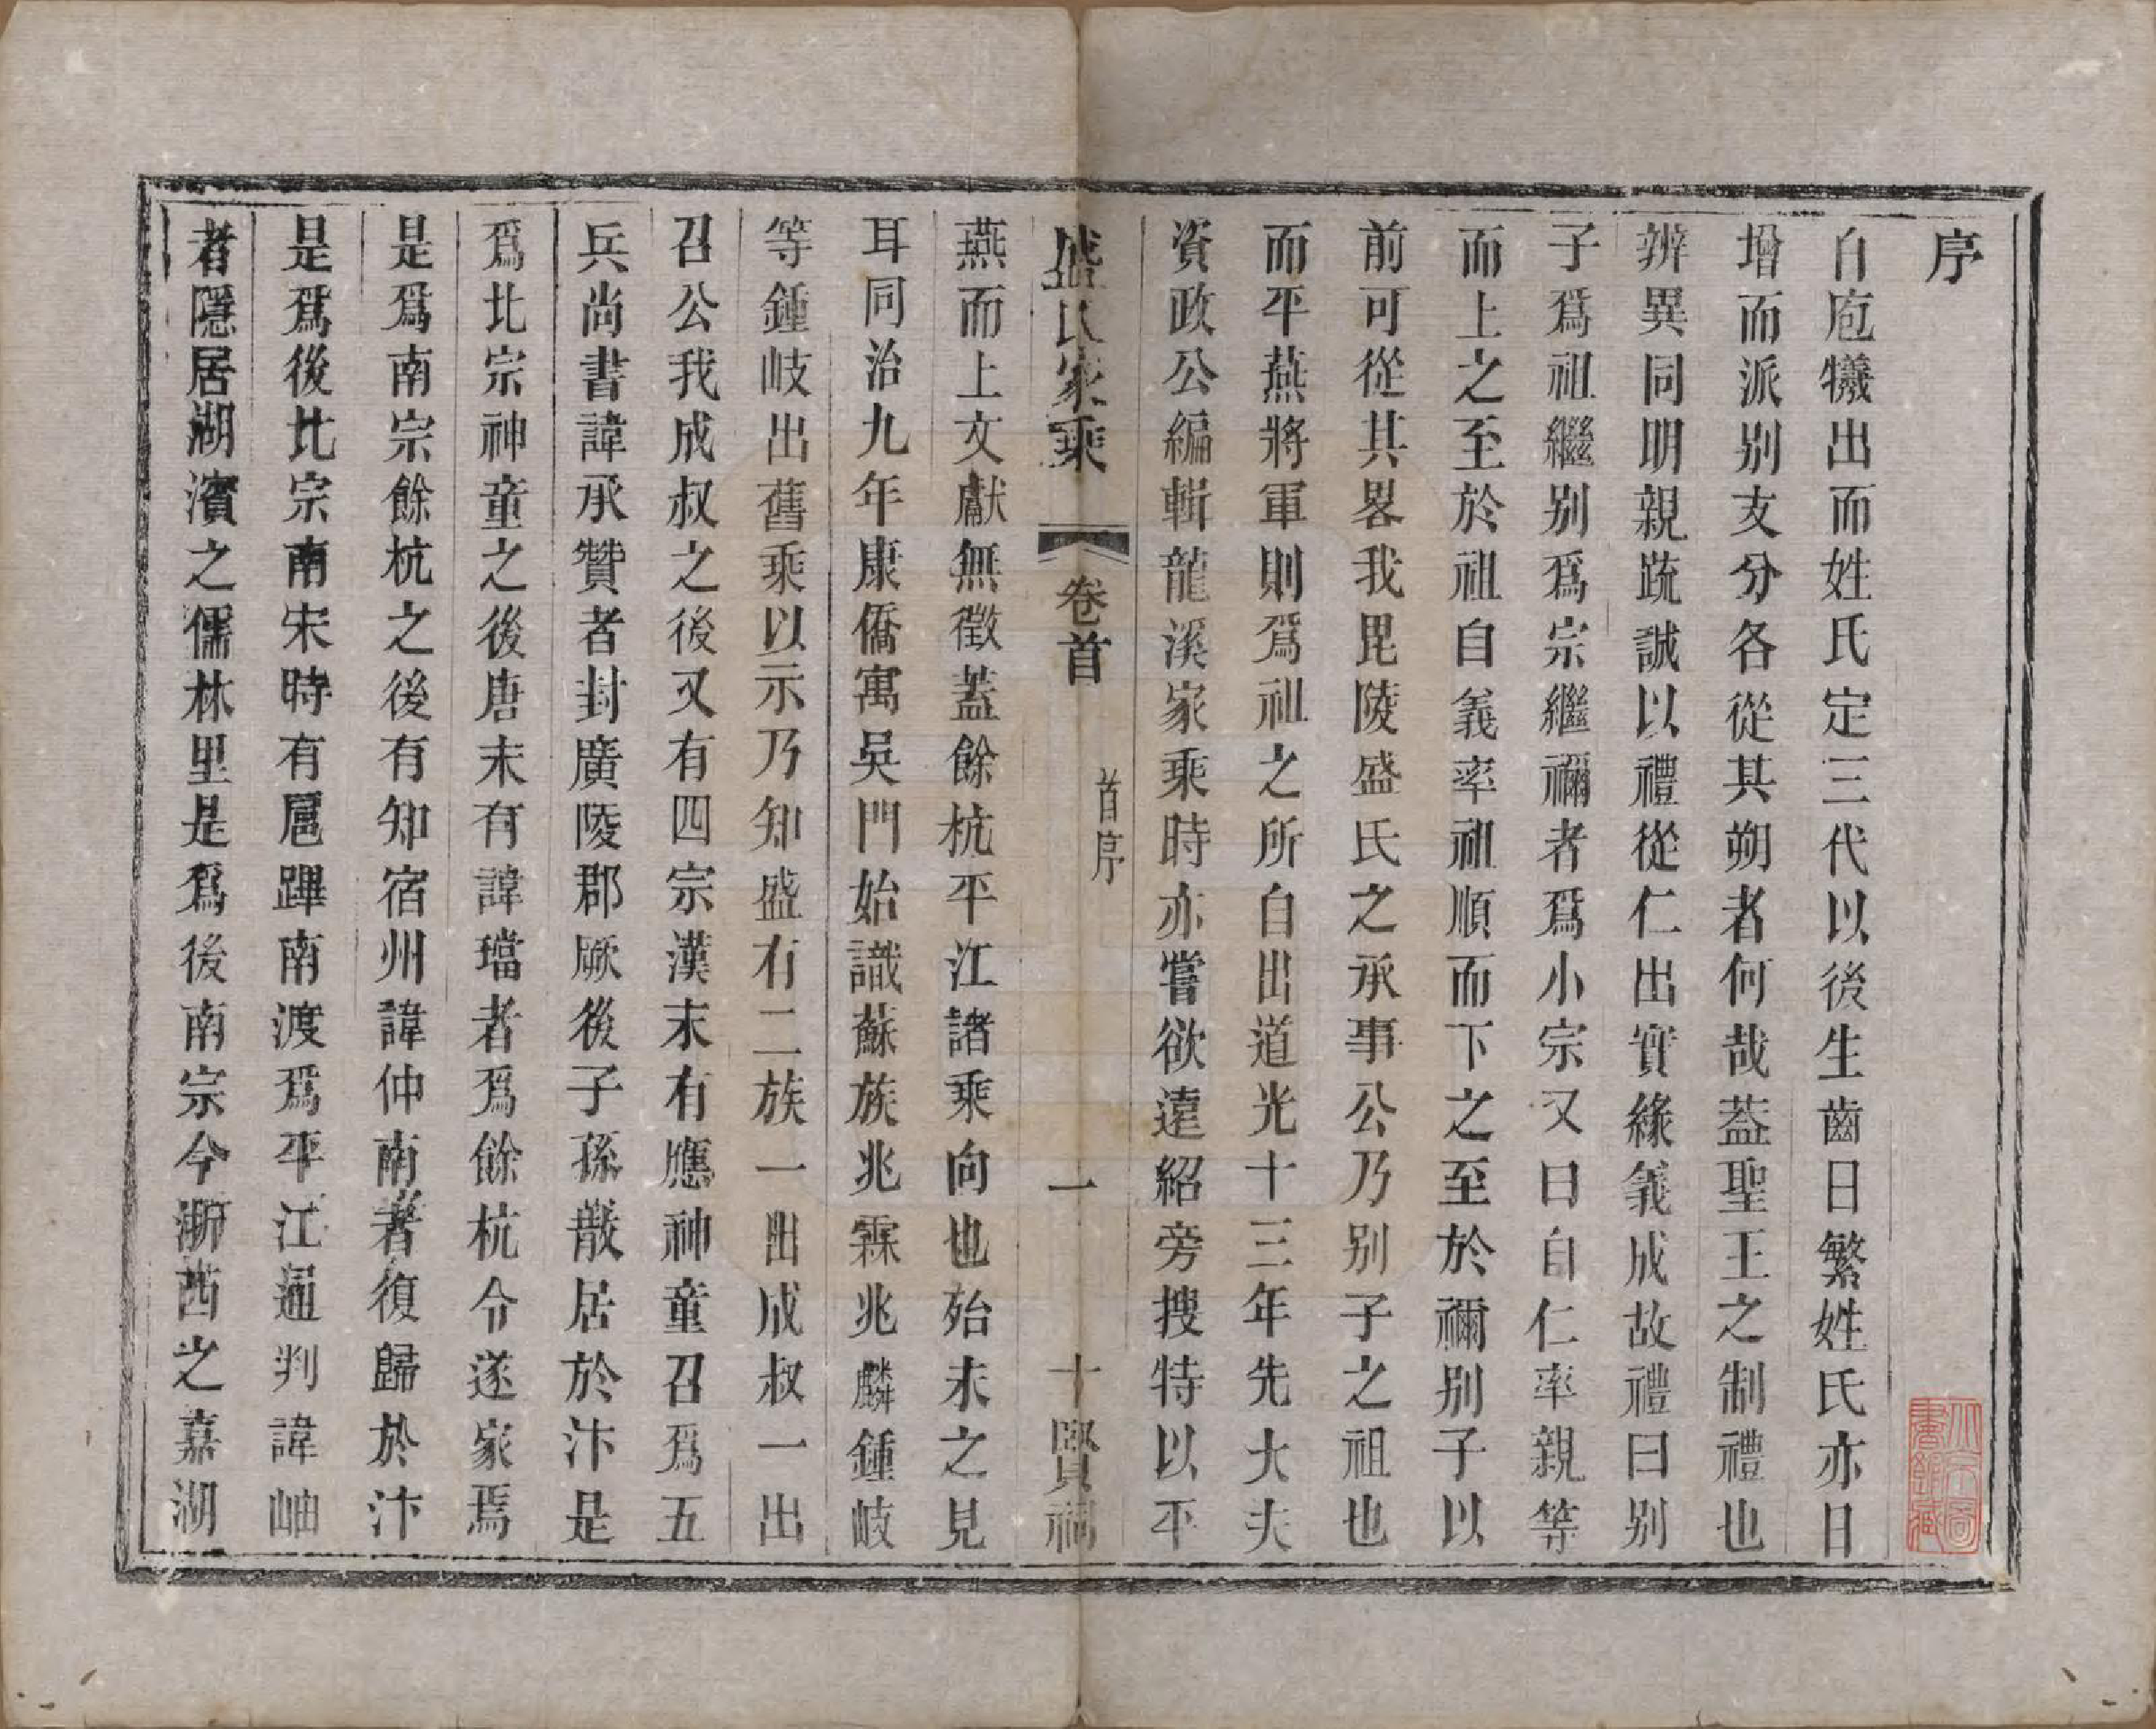 序
自庖犧出而姓氏定三代以後生齒日繁姓氏亦日
增而派别支分各從其朔者何哉葢聖王之制禮也
辨異同明親疏誠以禮從仁出實緣義成故禮曰别
子爲祖繼别爲宗繼禰者爲小宗又曰自仁率親等
而上之至於祖自義率祖順而下之至於禰别子以
前可從其畧我毘陵盛氏之承事公乃别子之祖也
而平燕將軍則爲祖之所自出道光十三年先大夫
資政公編輯龍溪家乘時亦嘗欲遠紹旁搜特以平
盛氏家乘
卷首
首序
一
十賢祠
燕而上文獻無徵蓋餘杭平江諸乘向也殆未之見
耳同治九年康僑寓吳門始識蘇族兆霖兆麟鍾岐
等鍾岐出舊乘以示乃知盛有二族一出成叔一出
召公我成叔之後又有四宗漢末有應神童召爲五
兵尚書諱承贊者封廣陵郡厥後子孫散居於汴是
爲北宗神童之後唐末有諱璫者爲餘杭令遂家焉
是爲南宗餘杭之後有知宿州諱仲南者復歸於汴
是爲後北宗南宋時有扈蹕南渡爲平江通判諱岫
者隱居湖濱之儒林里是爲後南宗今浙西之嘉湖